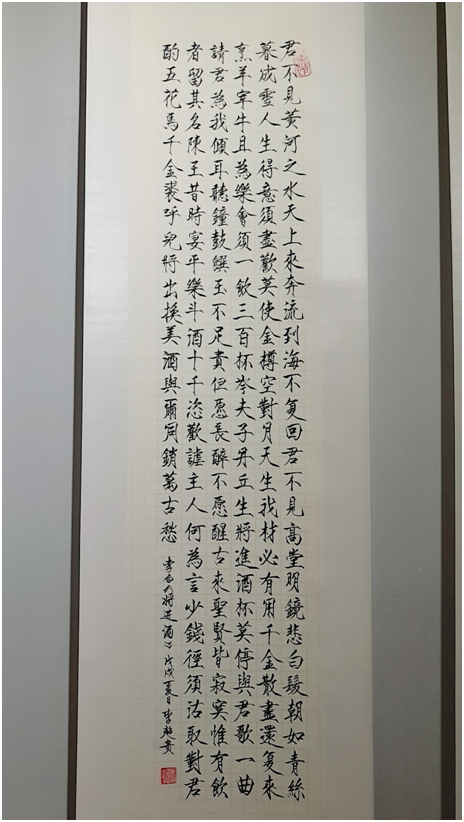 君不見黃河之水天上來奔流到海不复回君不見高堂明鏡悲白髮朝如青絲
暮成雪人生得意須盡歡莫使金樽空對月天生我材必有用千金散盡還复來
烹羊宰牛且為樂會須一飲三百杯岑夫子丹丘生將進酒杯莫停與君歌一曲
請君為我傾耳聽鐘鼓饌玉不足貴但愿長醉不愿醒古來聖賢皆寂寞惟有飲
者留其名陳王昔時宴平樂斗酒十千恣歡謔主人何為言少錢徑須沽取對君
酌五花馬千金裘呼兒將出換美酒與爾同銷萬古愁 李白 將進酒 戊戌夏日李